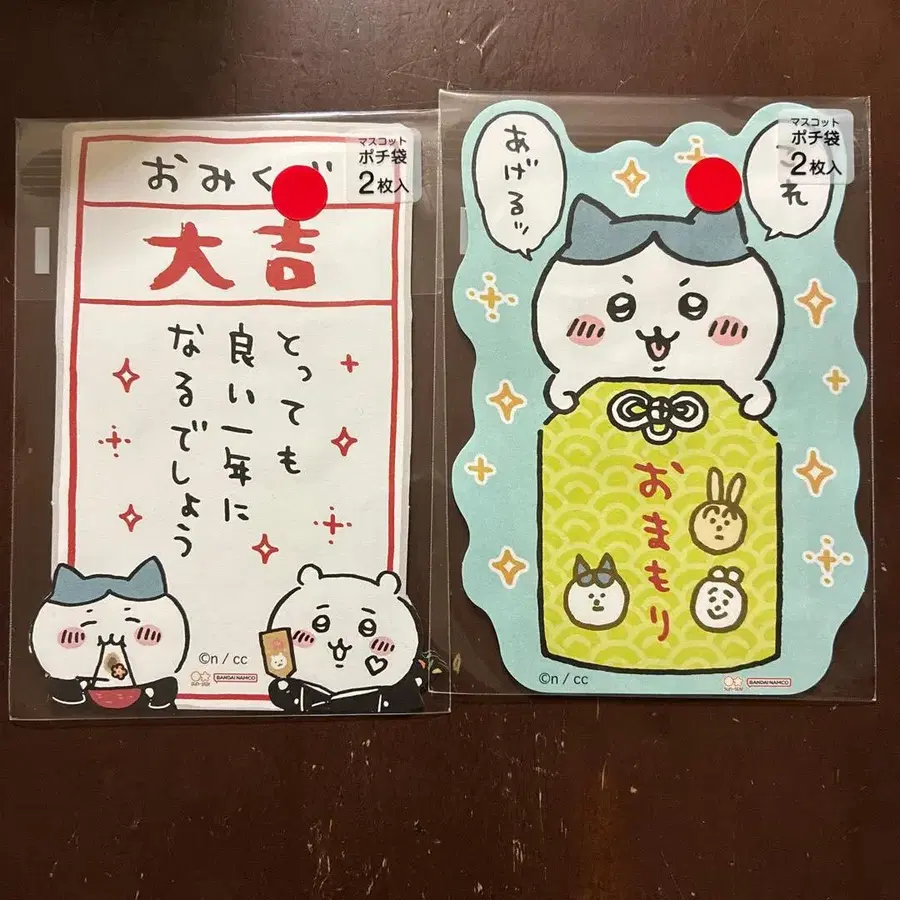 マスコット
ポチ袋
2枚入
おみく
大吉
とっても
良い一年に
なるでしょう
©n / cc
sun-star
BANDAI NAMCO
マスコット
ポチ袋
2枚入
れ
あげるッ
おまもり
©n / cc
sun-star
BANDAI NAMCO